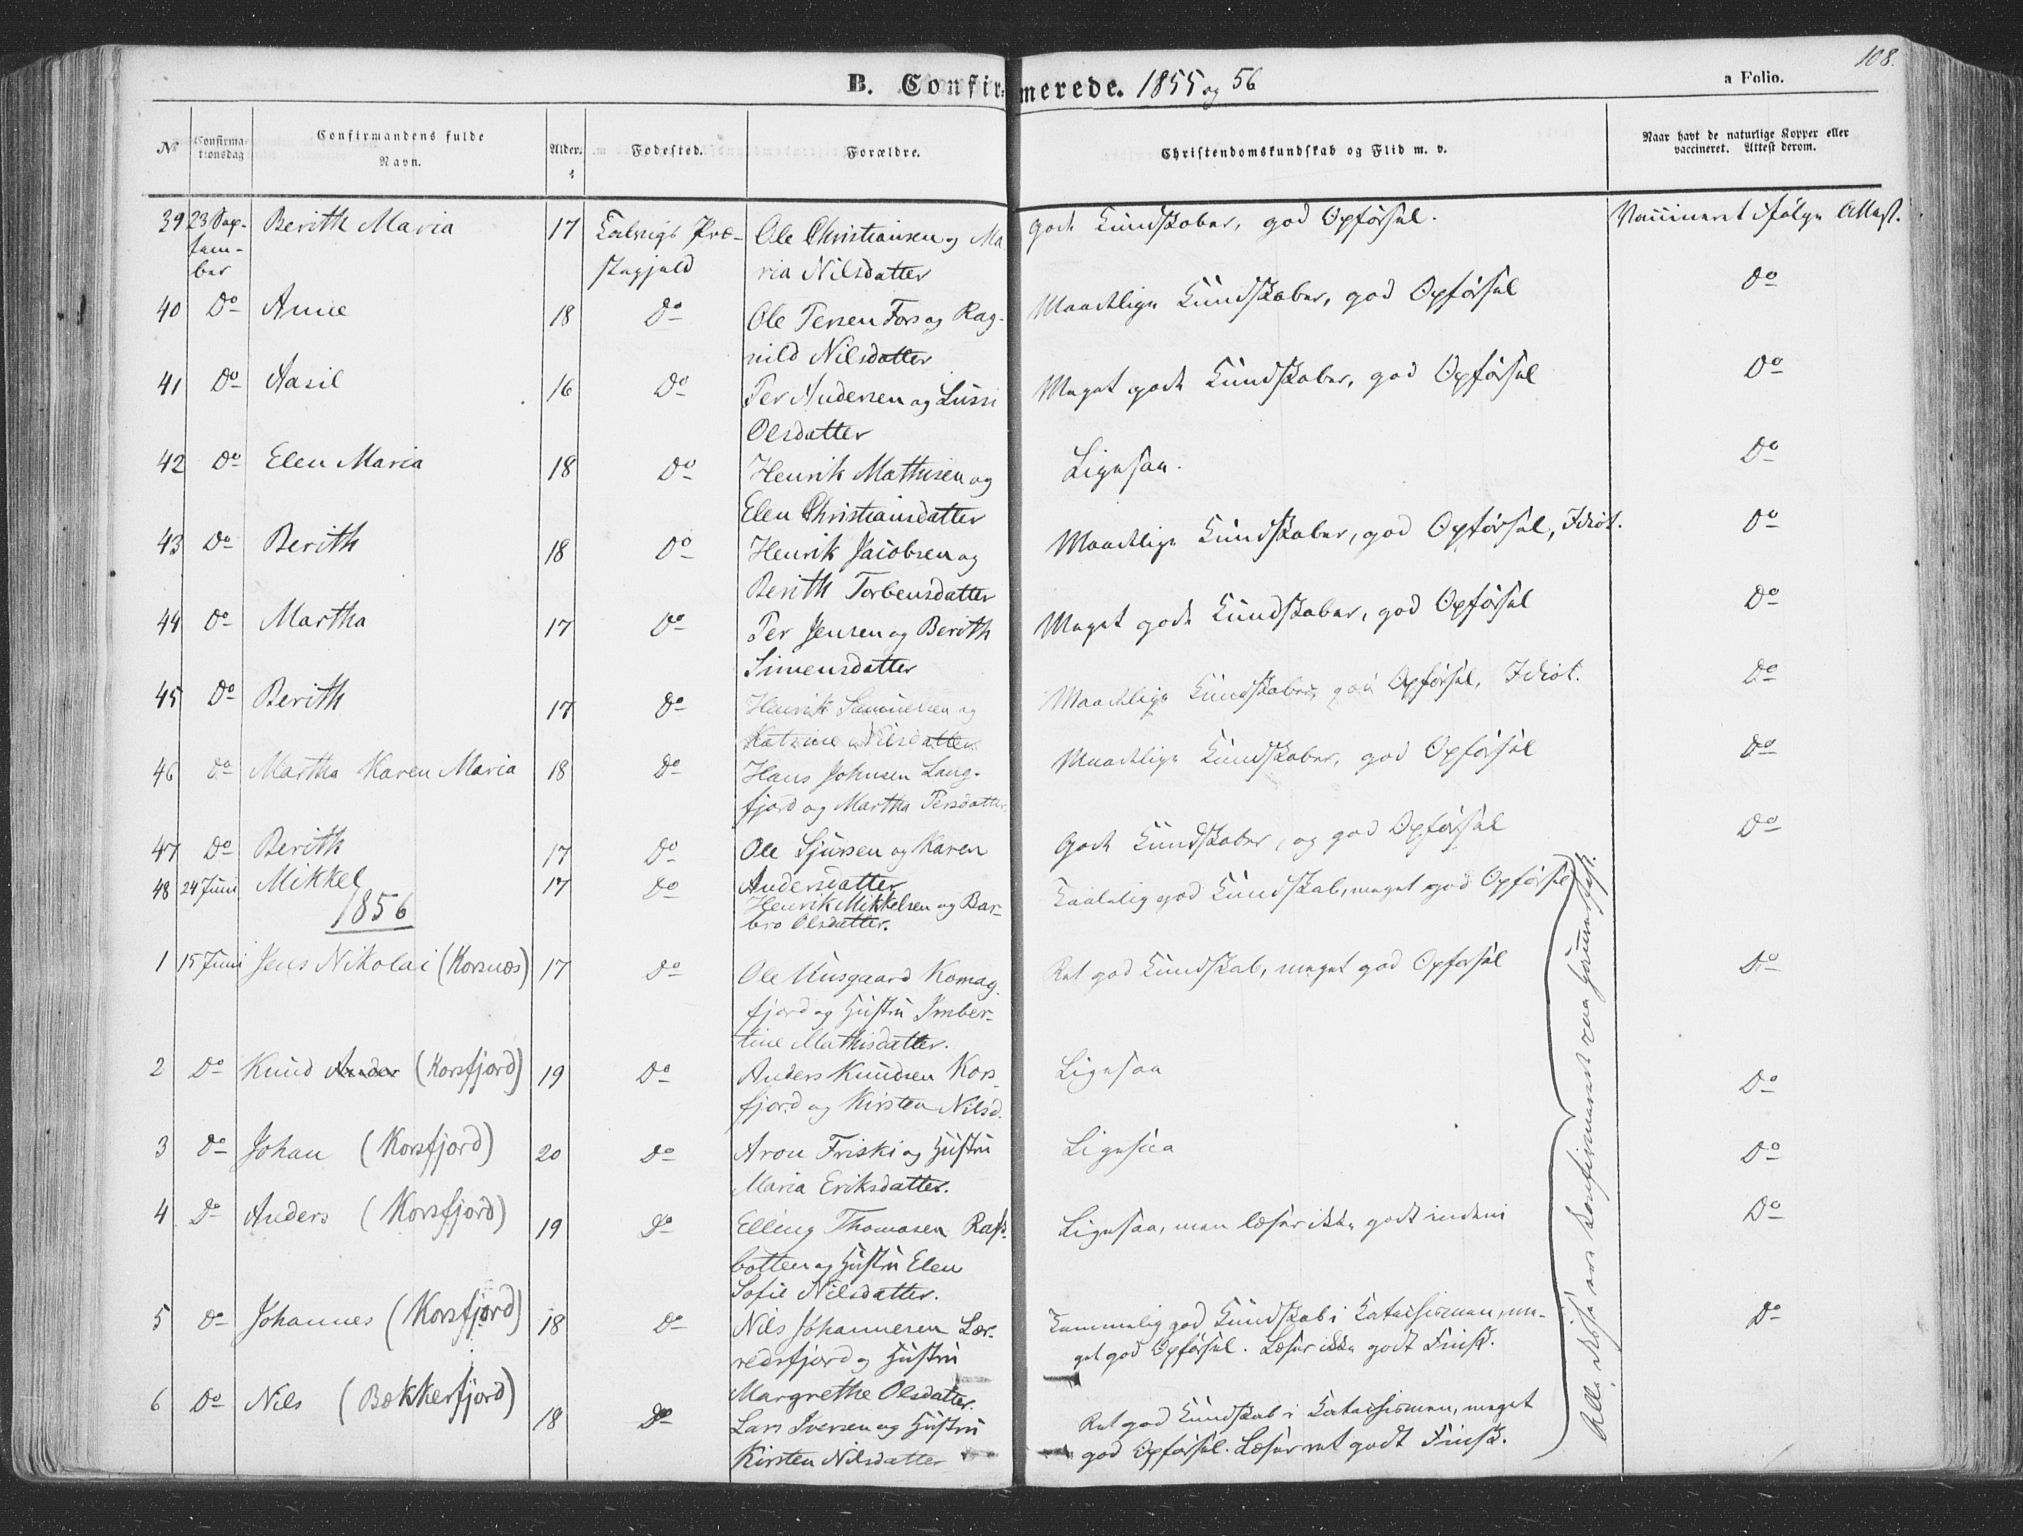 108.
B. Confirmerede. 1855 og 56
a Folio.
No
Confirmationsdag
Confirmandens fulde Navn.
Alder.
Fødested.
Forældre.
Christendomskundskab og Flid m. v.
Naar havt de naturlige Kopper eller vaccineret. Attest derom.
39 23 Sep- Berith Maria 17 Talvigs Præ- Ole Christiansen og Ma gode Kundskaber, god Opførsel. Vaccineret ifølge Attest.
tem- stegjeld ria Nilsdatter
ber
40 Do Anne 18 Do Ole Persen Fors og Rag- Maadelige Kundskaber, god Opførsel Do
nild Nilsdatter
41 Do Aasil 16 Do Per Andersen og Lussi Meget gode Kundskaber, god Opførsel Do
Olsdatter
42 Do Elen Maria 18 Do Henrik Mathisen og Ligesaa. Do
Elen Christiansdatter
43 Do Berith 18 Do Henrik Jacobsen og Maadelige Kundskaber, god Opførsel, Idiot. Do
Berith Torbensdatter
44 Do Martha 17 Do Per Jensen og Berith Meget gode Kundskaber, god Opførsel Do
Simensdatter
45 Do Berith 17 Do Henrik Samuelsen og Maadelige Kundskaber, god Opførsel, Idiot. Do
Katrine Nilsdatter
46 Do Martha Karen Maria 18 Do Hans Johnsen Lang- Maadelige Kundskaber, god Opførsel Do
fjord og Martha Persdatter
47 Do Berith 17 Do Ole Sjursen og Karen Gode Kundskaber, og god Opførsel Do
Andersdatter
48 24 Juni Mikkel 17 Do Henrik Mikkelsen og Bar- Taalelig god Kundskab, meget god Opførsel
bro Olsdatter.
1856
1 15 Juni Jens Nikolai (Korsnæs) 17 Do Ole Uusgaard Komag- Ret god Kundskab, meget god Opførsel Do
fjord og Hustru Imber-
tine Mathisdatter.
2 Do Knud Ander (Korsfjord) 19 Do Anders Knudsen Kors- Ligesaa Do
fjord og Kirsten Nilsd.
3 Do Johan (Korsfjord) 20 Do Aron Friski og Hustru Ligesaa Do
Maria Eriksdatter.
4 Do Anders (Korsfjord) 19 Do Elling Thomasen Rafs- Ligesaa, men læser ikke godt indeni Do
botten og Hustru Elen
Sofie Nilsdatter.
5 Do Johannes (Korsfjord) 18 Do Nils Johannesen Lær- Temmelig god Kundskab i Katechismen, me- Do
redsfjord og Hustru get god Opførsel. Læser ikke godt Finsk.
Margrethe Olsdatter.
6 Do Nils (Bekkerfjord) 18 Do Lars Iversen og Hustru Ret god Kundskab i Katechismen, meget
Kirsten Nilsdatter god Opførsel. Læser ret godt Finsk.
Alle disse ere konfirmerede paa